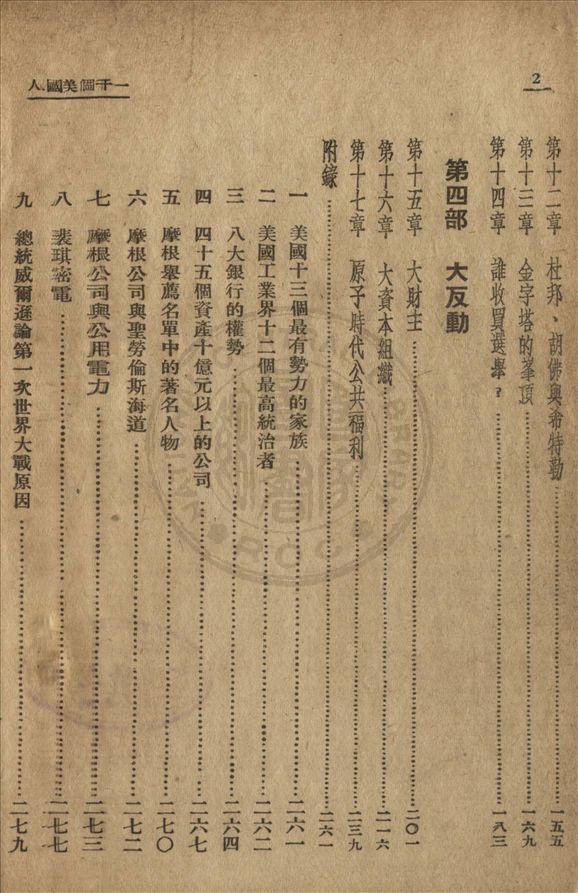 2
一千個美國人
第十二章 杜邦、胡佛與希特勒……一五五
第十三章 金字塔的峯頂……一六九
第十四章 誰收買選舉？……一八三
第四部 大反動
第十五章 大財主……二〇一
第十六章 大資本組織……二一六
第十七章 原子時代公共福利……二三九
附錄……二六一
一 美國十三個最有勢力的家族……二六一
二 美國工業界十二個最高統治者……二六二
三 八大銀行的權勢……二六四
四 四十五個資產十億元以上的公司……二六七
五 摩根舉薦名單中的著名人物……二七〇
六 摩根公司與聖勞倫斯海道……二七二
七 摩根公司與公用電力……二七三
八 裴琪密電……二七七
九 總統威爾遜論第一次世界大戰原因……二七九